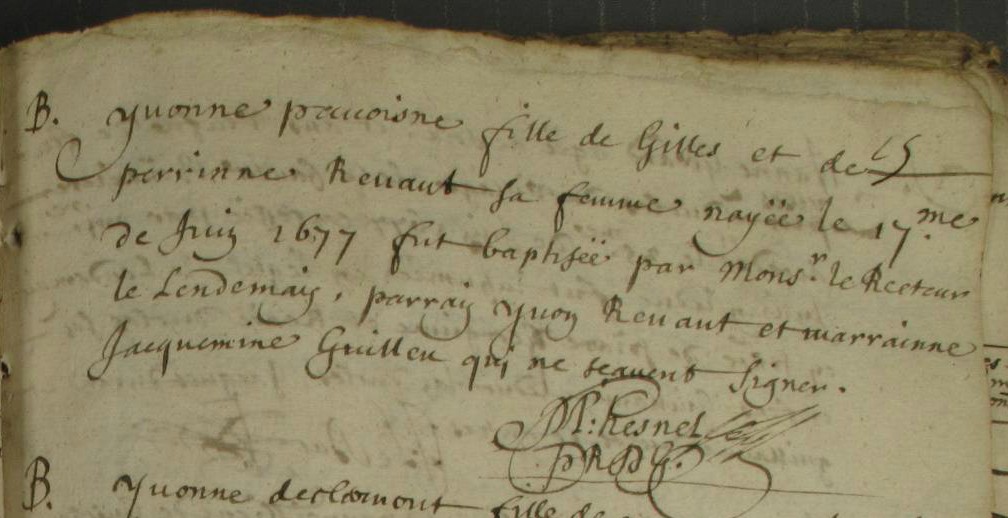 B. Yvonne pauoisne fille de Gilles et de
perrinne Reuaut sa femme nayée le 17.me
de Juin 1677 fut baptisée par Monsr. le Recteur
le Lendemain, parrain yuon Reuaut et marrainne
Jacquemine Guilleu qui ne sçauent signer.
Kesnel
B. Yvonne declermont fille de